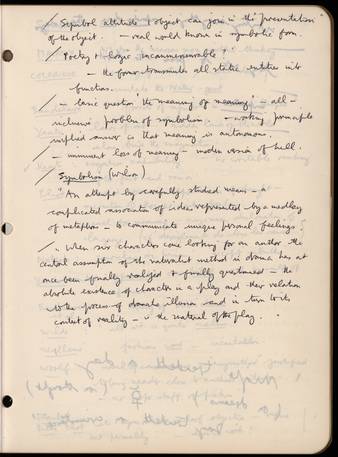 / Symbol attitude & object can join in the "presentation
of the object. – real world known in symbolic form.
/ Poetry & logic incommensurable :
– the former transmutes all static entities into
function.
/ – basic question "the meaning of meaning" – all-
inclusive problem of symbolism. – working principle
implied answer is that meaning is autonomous.
/ – imminent loss of meaning – modern version of hell.
/ Symbolism (Wilson)
"An attempt by carefully studied means – a
complicated association of ideas represented by a medley
of metaphors – to communicate unique personal feelings."
/ . When six characters come looking for an author the
central assumption of the naturalist method in drama has at
once been finally realized & finally questioned – the
absolute existence of characters in a play and their relation
to the process of dramatic illusion and in turn to the
context of reality – is the material of the play.